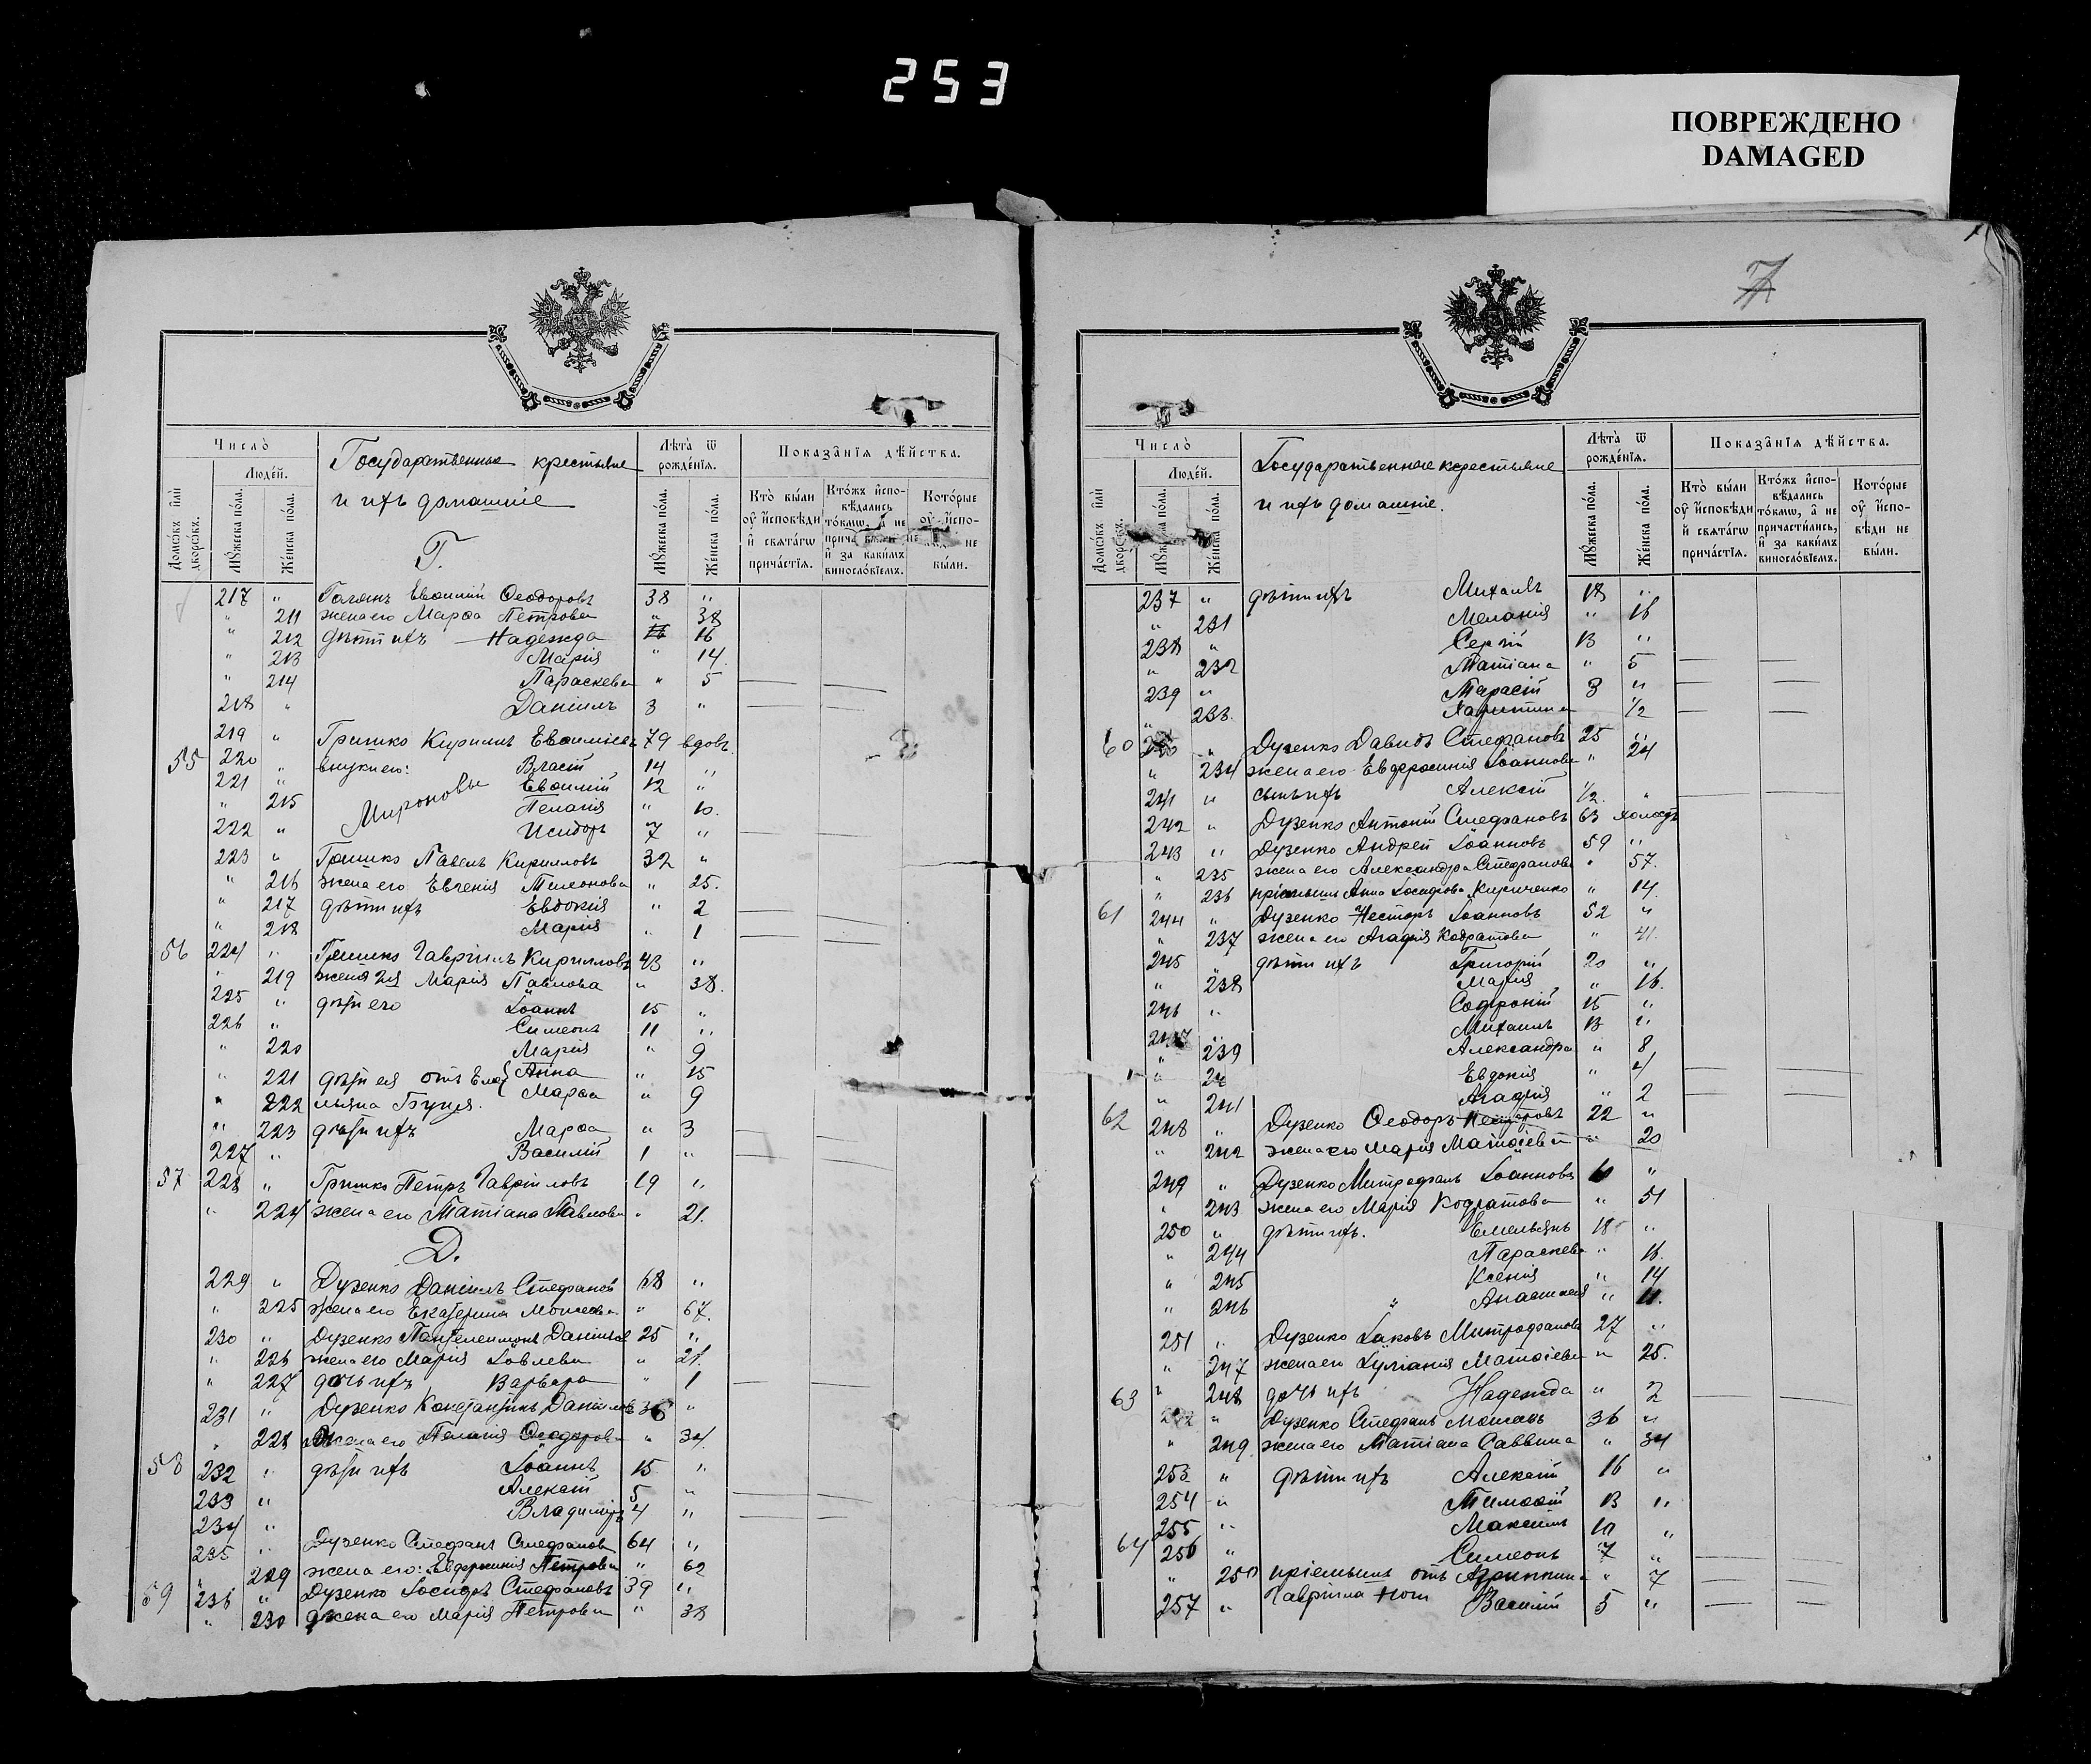 253
ПОВРЕЖДЕНО
DAMAGED
7
Число̀
Люде́й.
Домѡ́въ и҆лѝ дворѡ́въ.
Мꙋ́жеска по́ла.
Же́нска по́ла.
Государственные крестьяне
и ихъ домашніе
Г.
Лѣта̀ ѿ рожде́нїѧ.
Мꙋ́жеска по́ла.
Же́нска по́ла.
Показа̑нїѧ дѣ́йства.
Кто̀ бы́ли оу҆ и҆сповѣди и҆ свѧта́гѡ прича́стїѧ.
Кото́рые оу҆ и҆спо- не бы́ли.
217 " Евѳимій Ѳеодоровъ 38 "
" 211 жена его Марѳа Петрова " 38
" 212 дѣти ихъ Надежда 16
" 213 Марія " 14.
" 214 Параскева " 5
218 " Даніилъ 3 "
219 " Гришко Кириллъ Евѳиміевъ 79 вдовъ.
55 220 " внуки его: Власій 14 "
221 " Мироновы Евѳимій 12 "
" 215 Пелагія " 10.
222 " Исидоръ 7 "
223 " Гришко Павелъ Кирилловъ 32 "
" 216 жена его Евгенія " 25.
" 217 дѣти ихъ Евдокія " 2
" 218 Марія " 1
56 224 " Гришко Гавріилъ Кирилловъ 43 "
" 219 жена его Марія Павлова " 38.
225 " дѣти его Іоаннъ 15 "
226 " Симеонъ 11 "
" 220 Марія " 9
" 221 дѣти ея отъ Еме- Анна " 15
" 222 льяна Марѳа " 9
" 223 дѣти ихъ Марѳа " 3
227 " Василій 1 "
57 228 " Гришко Петръ Гавріиловъ 19 "
" 224 жена его Татіана Павлова " 21.
Д.
229 " Дузенко Даніилъ Стефановъ 68 "
" 225 жена его Екатерина Моисеева " 67.
230 " Дузенко Пантелеимонъ Даніиловъ 25 "
" 226 жена его Марія Іовлева " 21.
" 227 дочь ихъ Варвара " 1
231 " Дузенко Константинъ Даніиловъ 36 "
" 228 жена его Пелагія Ѳеодорова " 34.
58 232 " дѣти ихъ Іоаннъ 15 "
233 " Алексій 5 "
234 " Владиміръ 4 "
235 " Дузенко Стефанъ Стефановъ 64 "
" 229 жена его: Евфросинія Петрова " 62
59 236 " Дузенко Іосифъ Стефановъ 39 "
" 230 жена его Марія Петрова " 38
Число̀
Люде́й.
Домѡ́въ и҆лѝ дворѡ́въ.
Мꙋ́жеска по́ла.
Же́нска по́ла.
Государственные крестьяне
и ихъ домашніе.
Лѣта̀ ѿ рожде́нїѧ.
Мꙋ́жеска по́ла.
Же́нска по́ла.
Показа̑нїѧ дѣ́йства.
Кто̀ бы́ли оу҆ и҆сповѣди и҆ свѧта́гѡ прича́стїѧ.
Кто́жъ и҆спо- вѣдались то́кмѡ, а҆ не причасти́лись, и҆ за каки́мъ винослѡ́вїемъ.
Кото́рые оу҆ и҆спо- вѣди не бы́ли.
237 " дѣти ихъ Михаилъ 18 "
" 231 Меланія " 16
238 " Сергій 13 "
" 232 Татіана " 5
239 " Тарасій 3 "
" 233. Харитина " 1/2
60 240 " Дузенко Давидъ Стефановъ 25 "
" 234 жена его Евфросинія Іоаннова " 24
241 " сынъ ихъ Алексій 1/2. "
242 " Дузенко Антоній Стефановъ 63 холостъ
243 " Дузенко Андрей Іоанновъ 59 "
" 235 жена его Александра Стефанова " 57.
" 236 пріемышъ Анна Іосифова Кириченко " 14.
61 244 " Дузенко Несторъ Іоанновъ 52 "
" 237 жена его Агафія Кодратова " 41.
245 " дѣти ихъ Григорій 20 "
" 238 Марія " 16.
246 " Софроній 15 "
247 " Михаилъ 13 "
" 239 Александра " 8
" Евдокія " 4
" 241 Агафія " 2
62 248 " Дузенко Ѳеодоръ Несторовъ 22 "
" 242 жена его Марія Матѳіева " 20
249 " Дузенко Митрофанъ Іоанновъ "
" 243 жена его Марія Кодратова " 51
250 " дѣти ихъ. Емельянъ 18 "
" 244 Параскева " 16.
" 245 Ксенія " 14
" 246 Анастасія " 11.
251 " Дузенко Іаковъ Митрофановъ 27 "
" 247 жена его Іуліанія Матѳіева " 25.
63 " 248 дочь ихъ Надежда " 2
252 " Дузенко Стефанъ Моисеевъ 36 "
" 249 жена его Татіана Саввина " 34
253 " дѣти ихъ Алексій 16 "
254 " Тимоѳій 13 "
255 " Максимъ 10 "
64 256 " Симеонъ 7 "
" 250 пріемышъ отъ Агриппина " 7
257 " Гавріила Василій 5 "